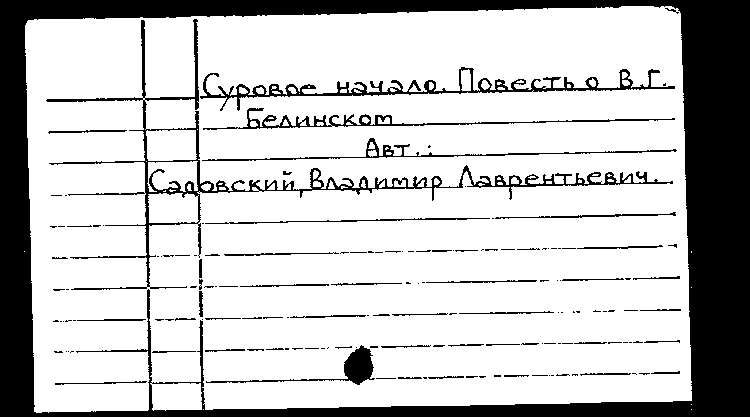 Суровое начало. Повесть о В.Г.
Белинском
Авт.:
Садовский, Владимир Лаврентьевич.